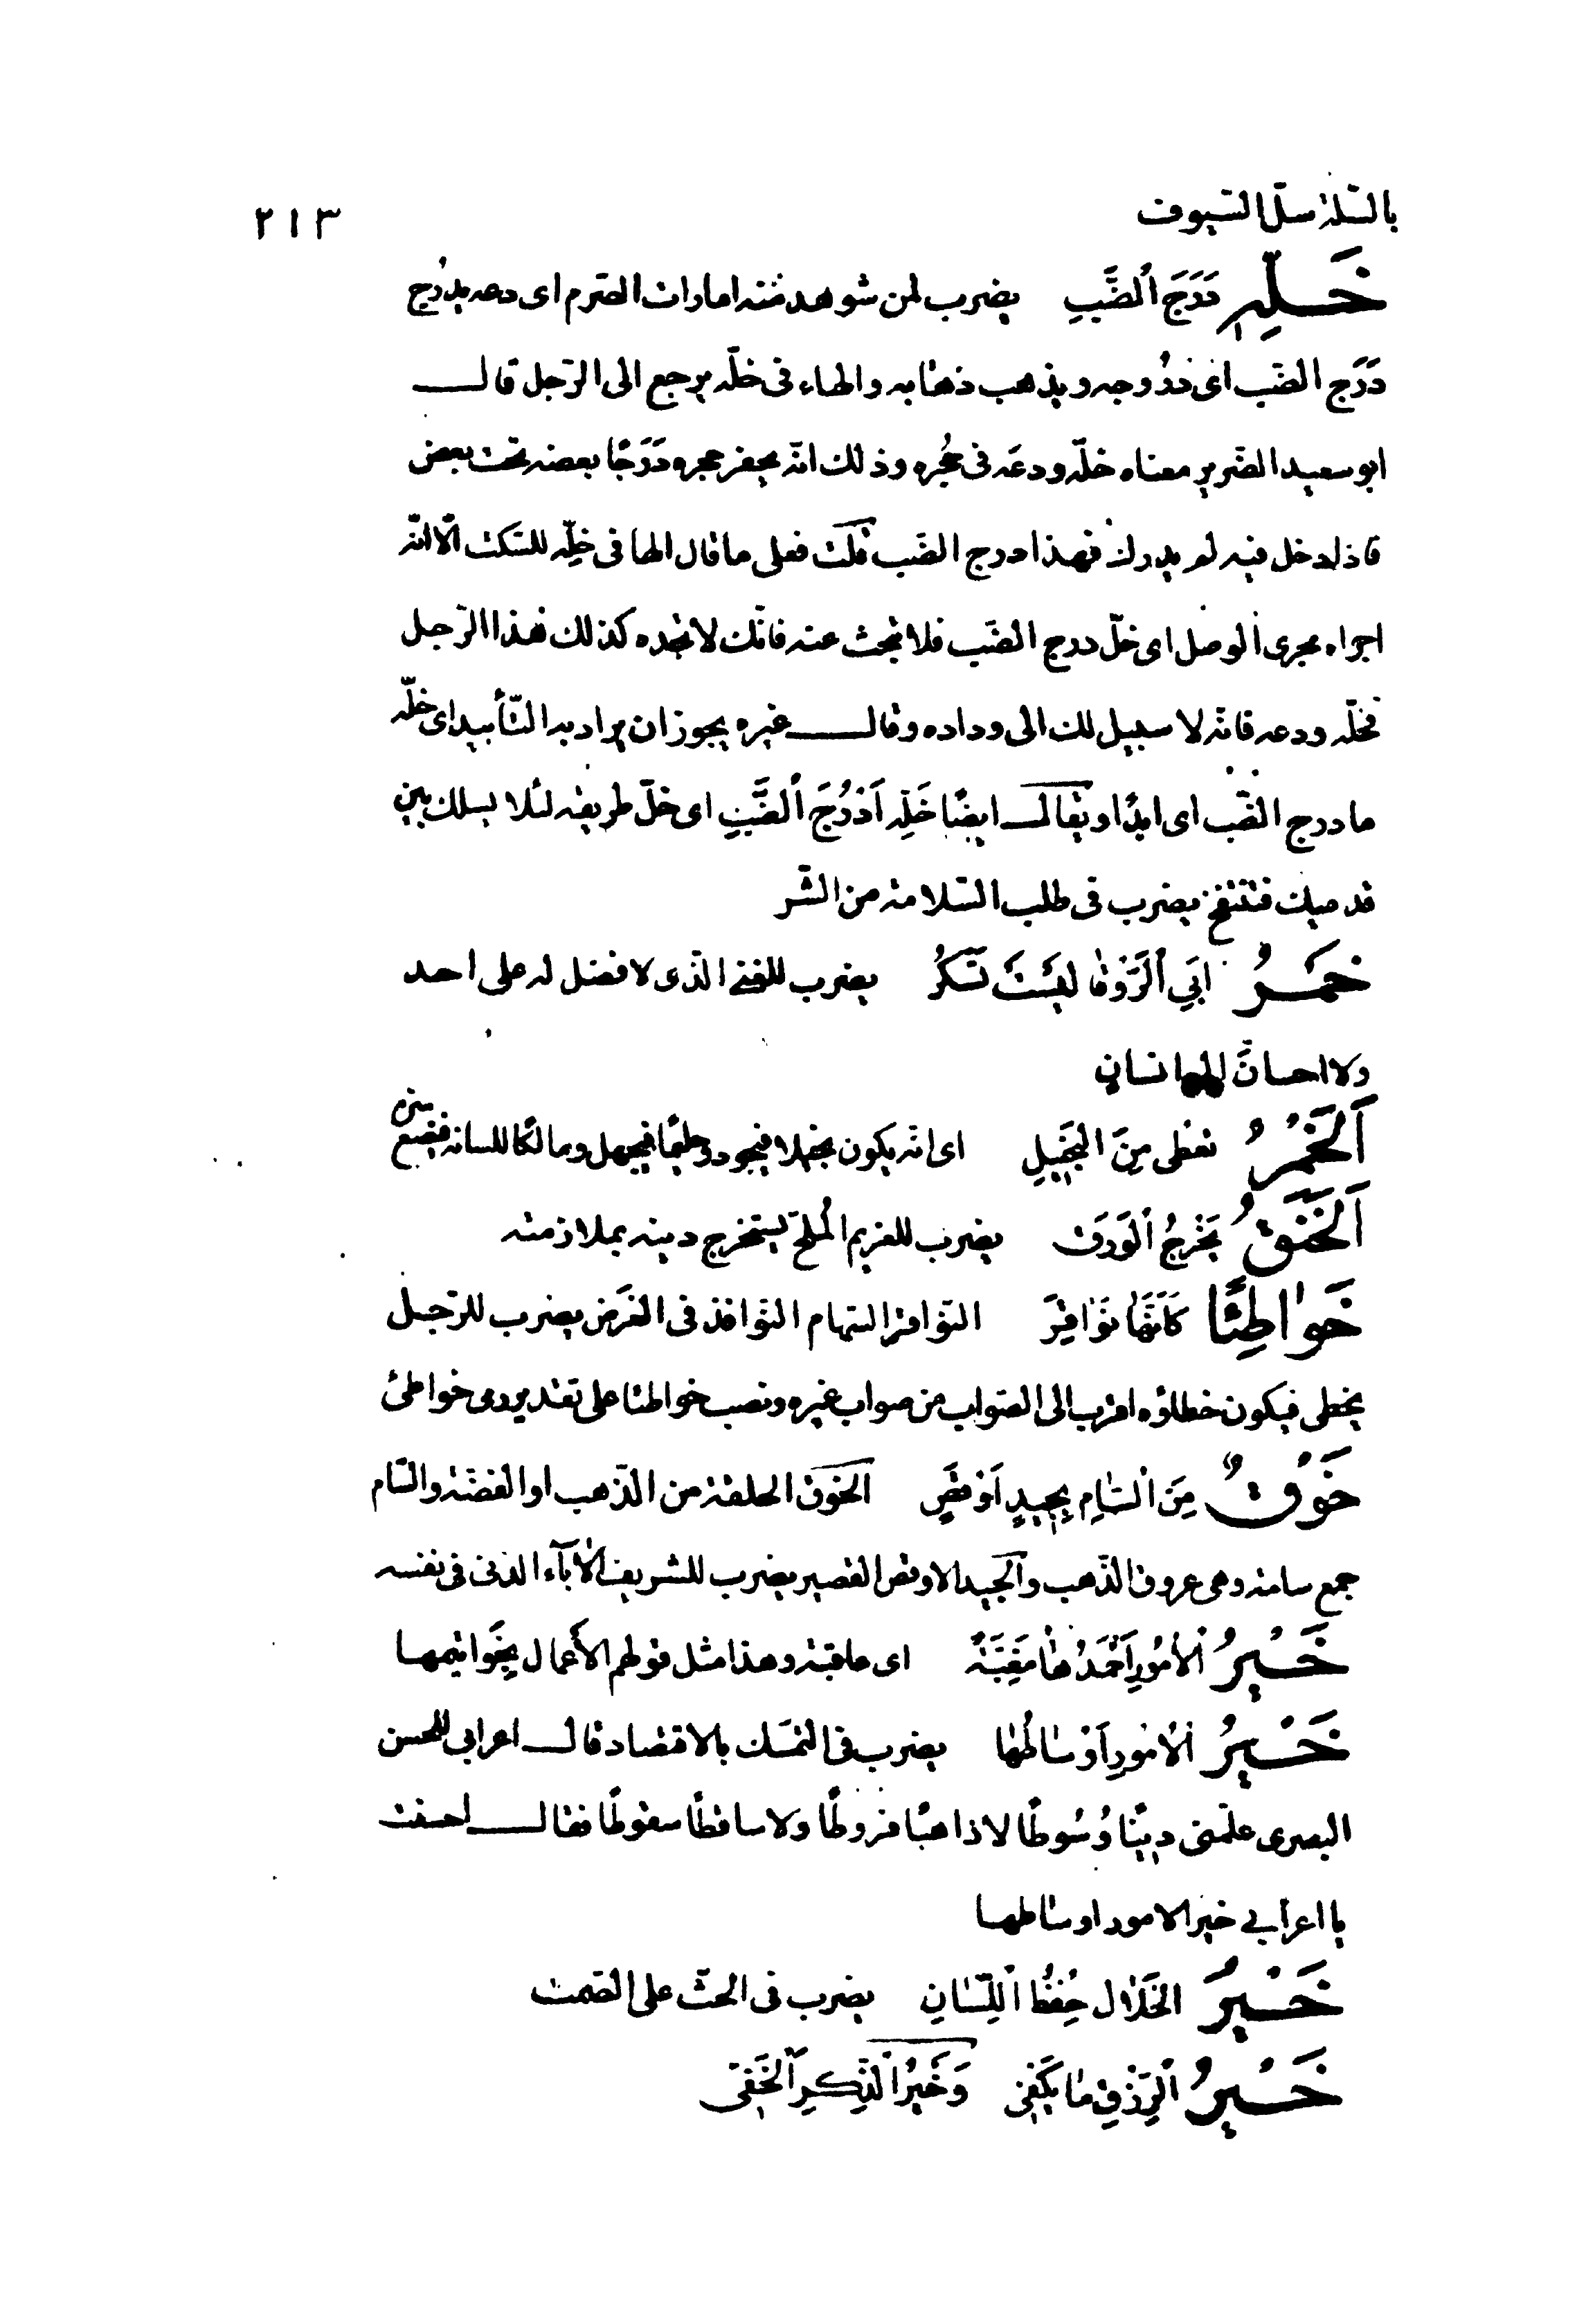 بالسّلة سلّ السّيوف
٢١٣
خَلِّهِ دَرَجَ ٱلضَّبِّ يضرب لمن شوهد منه امارات الصّرم اى دعه يدرُج
دَرَج الضّب اى دُرُوجه ويذهب ذهابه والهاء فى خلّه يرجع الى الرّجل قال
ابو سعيد الضّرير معناه خلّه ودعَه فى جُحره وذلك انّه يحفر جحره دَرَجًا بعضه تحت بعض
فاذا دخل فيه لم يدرك فهذا درج الضّب قلت فعلى ما قال الها فى خلِّه للسّكت الّا انّه
اجراه مجرى الوصل اى خلّ درج الضّب فلا تبحث عنه فانّك لا تجده كذلك هذا الرّجل
فخلّه ودعه فانّه لا سبيل لك الى وداده وقال غيره يجوز ان يراد به التّأبيد اى خلّه
ما درج الضّب اى ابدًا ويقال ايضًا خَلِّهِ اَدْرُجَ ٱلضَّبِّ اى خلّ طريقه لئلا يسلك بين
قدميك فتنتفخ يضرب فى طلب السّلامة من الشّر
خَمْرُ ابَي ٱلرَّوْقَا لَيْسَتْ تُسْكِرُ يضرب للغنى الّذى لا فضل له على احد
ولا احسانَ الى انسان
اَلْخَمْرُ تُعْطى مِنَ الْبَخيلِ اى انّه يكون بخيلا فيجود وحليمًا فيجهل ومالكًا للسانه فيضيع سرّه
اَلْخَنِقُ يُخْرِجُ ٱلْوَرِقَ يضرب للغريم المُلحّ يستخرج دينه بملازمته
خَوٰاطِئًا كَاَنَّهٰا نَوٰاقِرَ النّواقر السّهام النّوافذ فى الغَرض يضرب للرّجل
يخطى فيكون خطاؤه اقرب الى الصّواب من صواب غيره ونصب خواطئا على تقدير رمى خواطئ
خَوْقٌ مِنَ ٱلسّٰامِ بِجيدٍ اَوْقَصٍ الخوق الحلقة من الذّهب او الفضّة والسّام
جمع سامة وهى عروق الذّهب والجيد الاوقص القصير يضرب للشريف الآبآء الدّنى فى نفسه
خَيْرُ ٱلْاُمُورِ اَحْمَدُهٰا مَغِبَّةً اى عاقبة وهذا مثل قولهم الأعمال بِخَواتيمها
خَيْرُ ٱلْاُمُورِ اَوْسٰاطُهٰا يضرب فى التمسّك بالاقتصاد قال اعرابى للحسن
البصرى علّمنى دينًا وُسُوطًا لا ذاهبًا فروطًا ولا ساقطًا سقوطًا فقال احسنت
يا اعرابي خير الامور اوساطها
خَيْرُ الْخَلٰالِ حِفْظُ ٱللِّسٰانِ يضرب فى الحثّ على الصّمت
خَيْرُ ٱلرِّزْقِ مٰا يَكْفى وَخَيْرُ ٱلذِّكرِ ٱلْخَفىّ